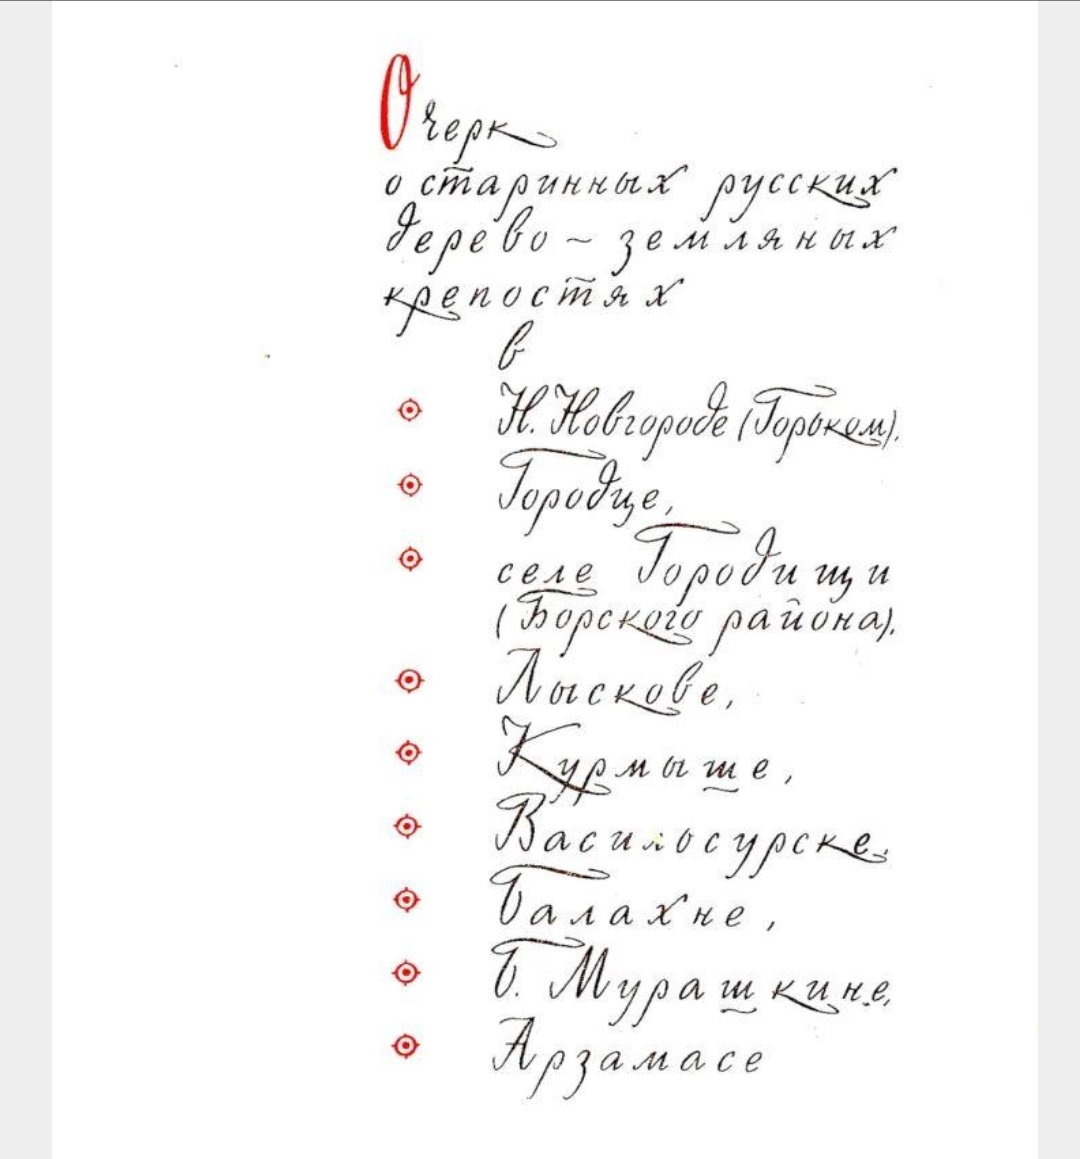 Очерк
о старинных русских
дерево-земляных
крепостях
в
Н. Новгороде (Горьком),
Городце,
селе Городищи
(Борского района),
Лыскове,
Курмыше,
Василосурске,
Балахне,
Б. Мурашкине,
Арзамасе